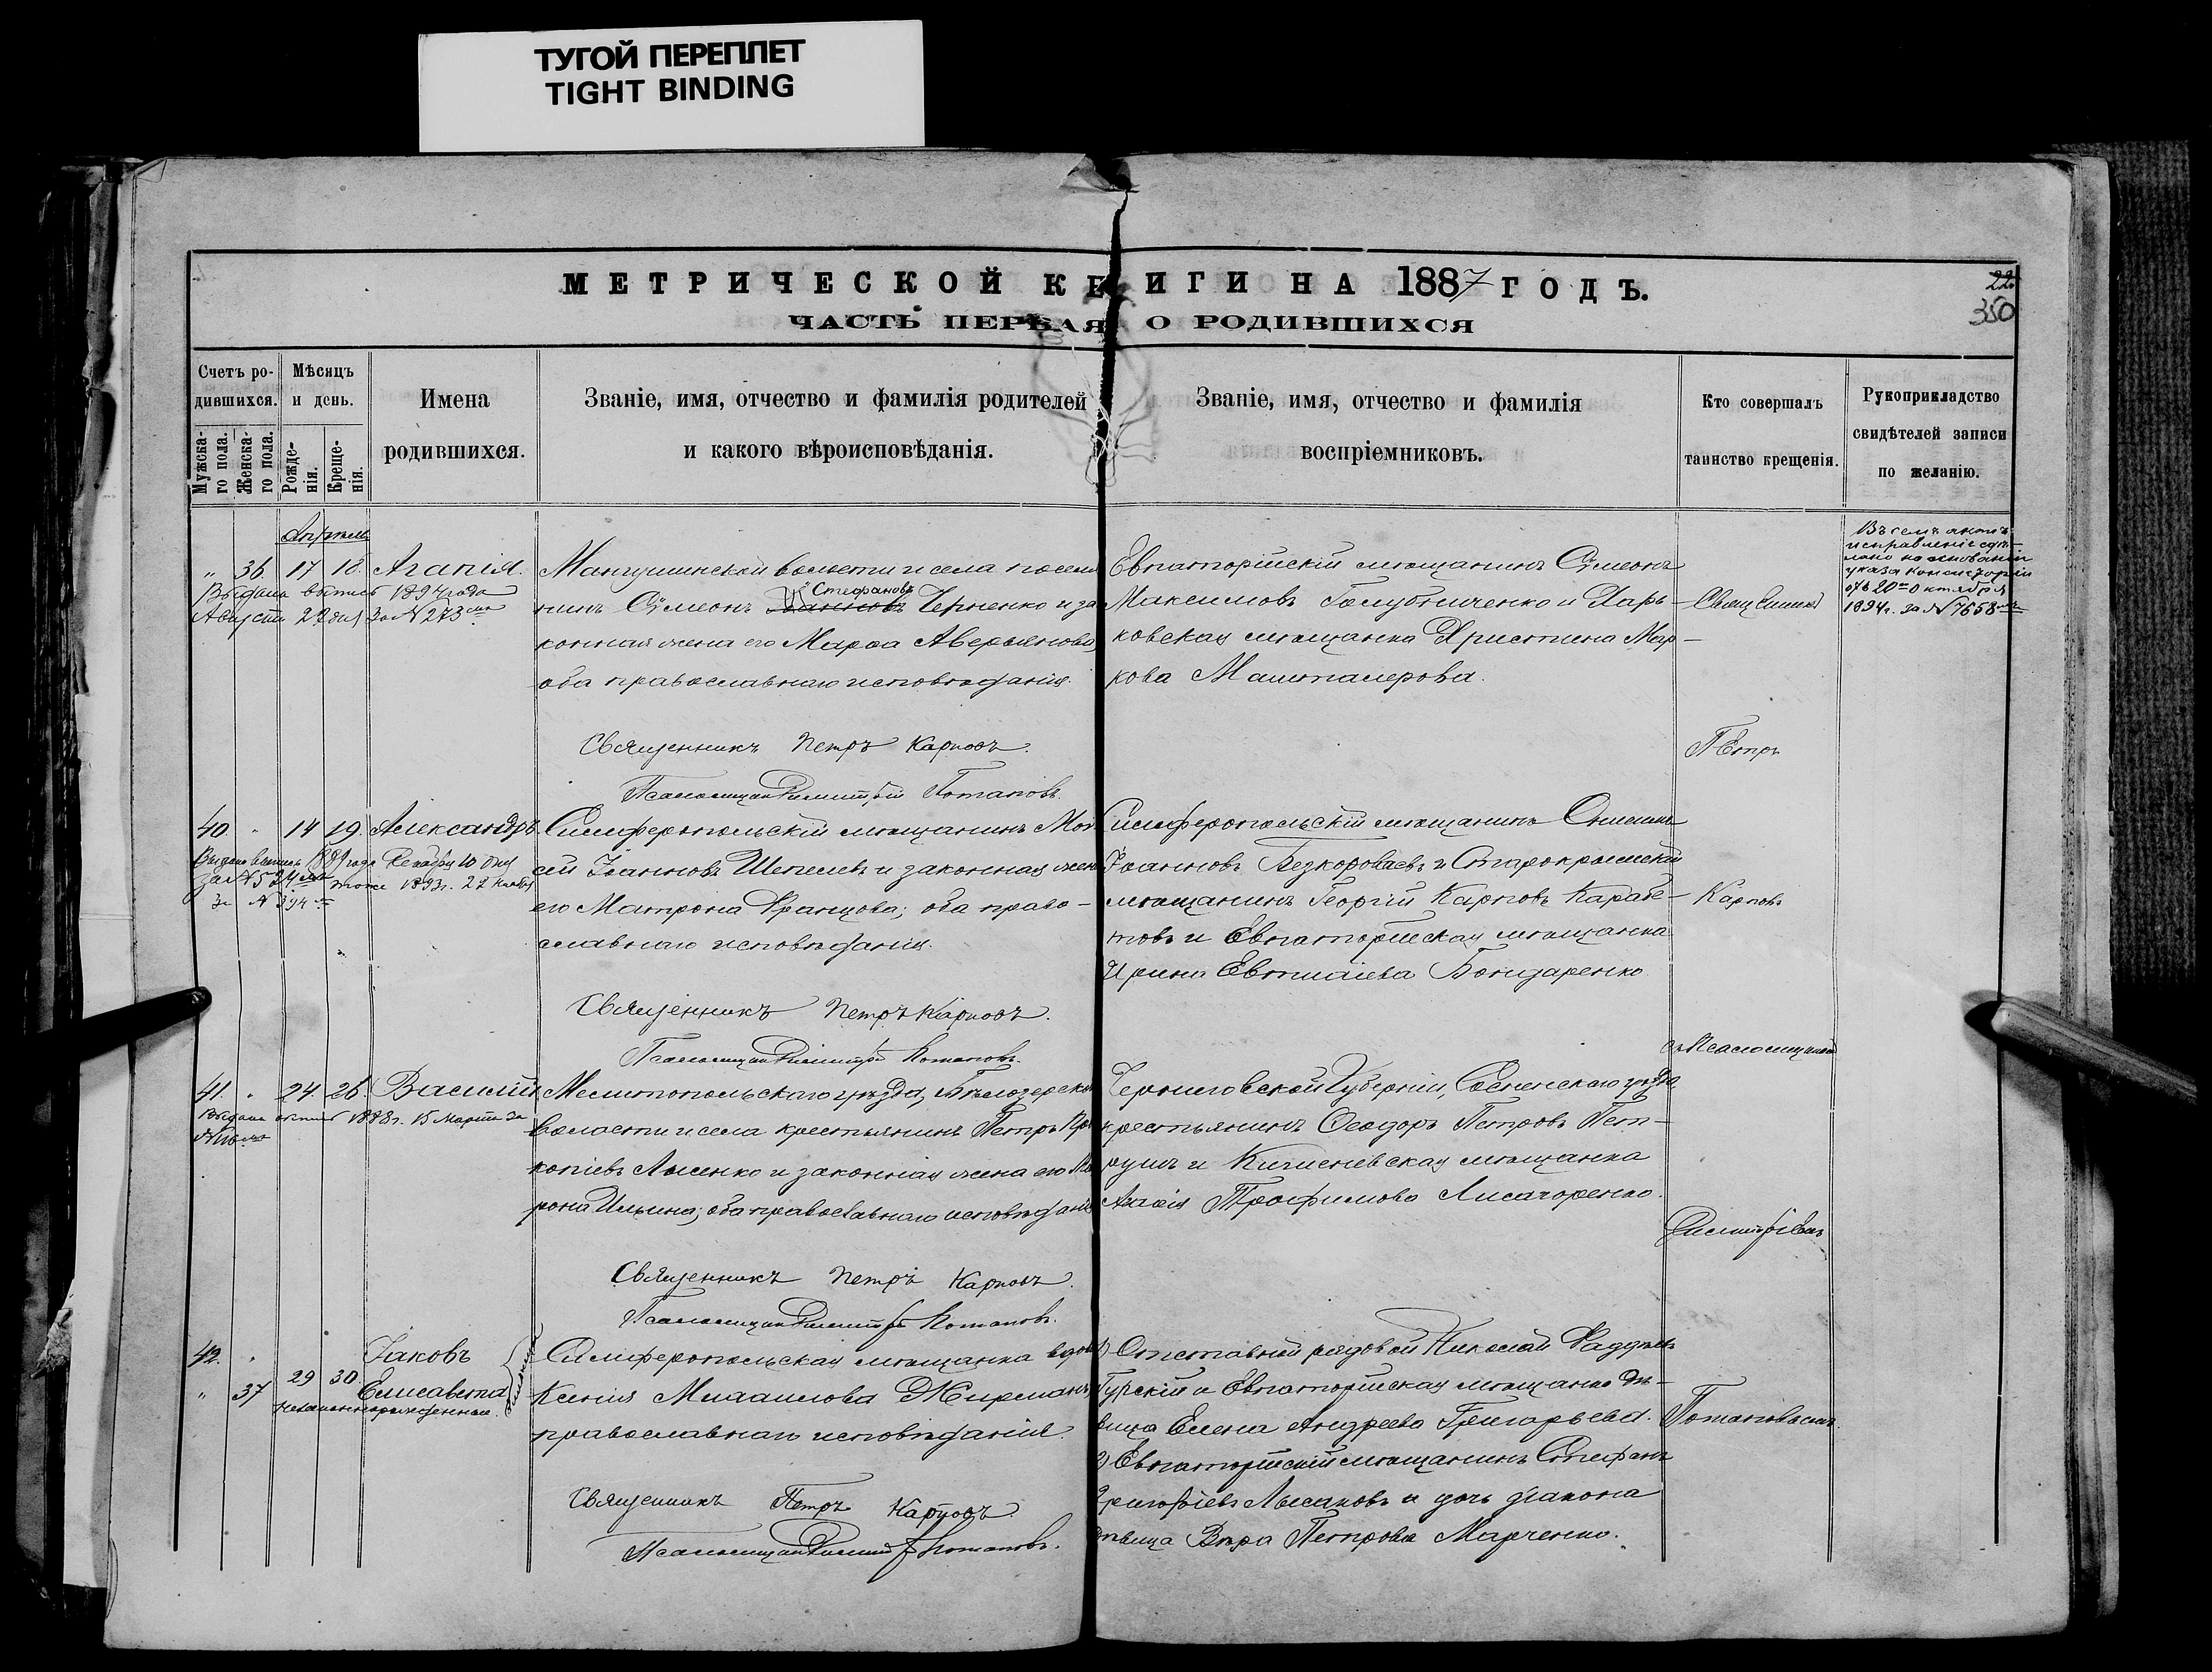 ТУГОЙ ПЕРЕПЛЕТ
TIGHT BINDING
МЕТРИЧЕСКОЙ КНИГИ НА 1887 ГОДЪ.
22
350
ЧАСТЬ ПЕРВАЯ О РОДИВШИХСЯ
Счетъ ро-
дившихся.
Мужска-
го пола.
Женска-
го пола.
Мѣсяцъ
и день.
Рожде-
нія.
Креще-
нія.
Имена
родившихся.
Званіе, имя, отчество и фамилія родителей
и какого вѣроисповѣданія.
Званіе, имя, отчество и фамилія
воспріемниковъ.
Кто совершалъ
таинство крещенія.
Рукоприкладство
свидѣтелей записи
по желанію.
Апрѣль
„ 36. 17 18. Агапія.
Выдана выпись 1894 года
Августа 22 дня за № 273
Мангушинской волости и села посел
нинъ Сѵмеонъ Іоанновъ Стефановъ Черненко и за
конная жена его Марѳа Аверьянова,
оба православнаго исповѣданія.
Священникъ Петръ Карповъ.
Псаломщикъ Димитрій Потаповъ.
Евпаторійскій мѣщанинъ Сѵмеонъ
Максимовъ Голубниченко и Харь-
ковская мѣщанка Христина Мар-
кова Машталерова.
Священникъ
Петръ
Въ семъ актѣ
исправленіе сдѣ-
лано на основаніи
указа консисторіи
отъ 20 октября
1894 г. за № 7658
40. „ 14 19. Александръ.
Выдана выпись 1889 года Декабря 10 дня
за № 524 тоже 1893 г. 22 Ноября
за № 394
Симферопольскій мѣщанинъ Мои
сей Іоанновъ Шепелевъ и законная жена
его Матрона Францова; оба право-
славнаго исповѣданія.
Священникъ Петръ Карповъ.
Псаломщикъ Димитрій Потаповъ.
Симферопольскій мѣщанинъ
Іоанновъ Безкороваевъ и Старокрымскій
мѣщанинъ Георгій Карповъ Карабе-
товъ и Евпаторійская мѣщанка
Ирина Евтихіева Бондаренко
Карповъ
съ Псаломщикомъ
41. „ 24. 26. Василій
Выдана выпись 1888 г. 15 Марта за
№
Мелитопольскаго уѣзда, Бѣлозерской
волости и села крестьянинъ Петръ Про
копіевъ Лысенко и законная жена его Ма
рона Ильина; оба православнаго исповѣданія
Священникъ Петръ Карповъ.
Псаломщикъ Димитрій Потаповъ.
Черниговской Губерніи, Сосненскаго уѣзда
крестьянинъ Ѳеодоръ Петровъ Пет-
рушъ и Кишеневская мѣщанка
Трофимова Лисагоренко.
Димитріемъ
42. „ Іаковъ
„ 37 29 30. Елисавета
незаконнорожденные.
Симферопольская мѣщанка вдова
Ксенія Михаилова Жирманъ
православнаго исповѣданія.
Священникъ Петръ Карповъ.
Псаломщикъ Димитрій Потаповъ.
1) Отставной рядовой Николай Фаддѣевъ
Гурскій и Евпаторійская мѣщанка дѣ-
вица Елена Андреева Григорьева.
2) Евпаторійскій мѣщанинъ Стефанъ
Григоріевъ Лысаковъ и дочь діакона
дѣвица Вѣра Петрова Марченко.
Потаповымъ.